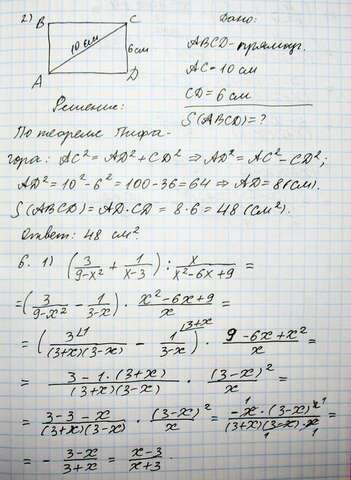 2) B C Дано:
10 см 6см ABCD-прямоуг.
A D AC=10 см
Решение: CD=6 см
S(ABCD)=?
По теореме Пифа-
гора: AC²=AD²+CD² ⇒ AD²=AC²-CD²;
AD²=10²-6²=100-36=64 ⇒ AD=8(см).
S(ABCD)=AD·CD=8·6=48(см²).
Ответ: 48 см².
6. 1) (3/(9-x²) + 1/(x-3)) : x/(x²-6x+9) =
=(3/(9-x²) - 1/(3-x)) · (x²-6x+9)/x =
=(3^(1)/((3+x)(3-x)) - 1^(3+x)/(3-x)) · (9-6x+x²)/x =
= (3-1·(3+x))/((3+x)(3-x)) · (3-x)²/x =
= (3-3-x)/((3+x)(3-x)) · (3-x)²/x = (-x·(3-x)²)/((3+x)(3-x)·x) =
= - (3-x)/(3+x) = (x-3)/(x+3).